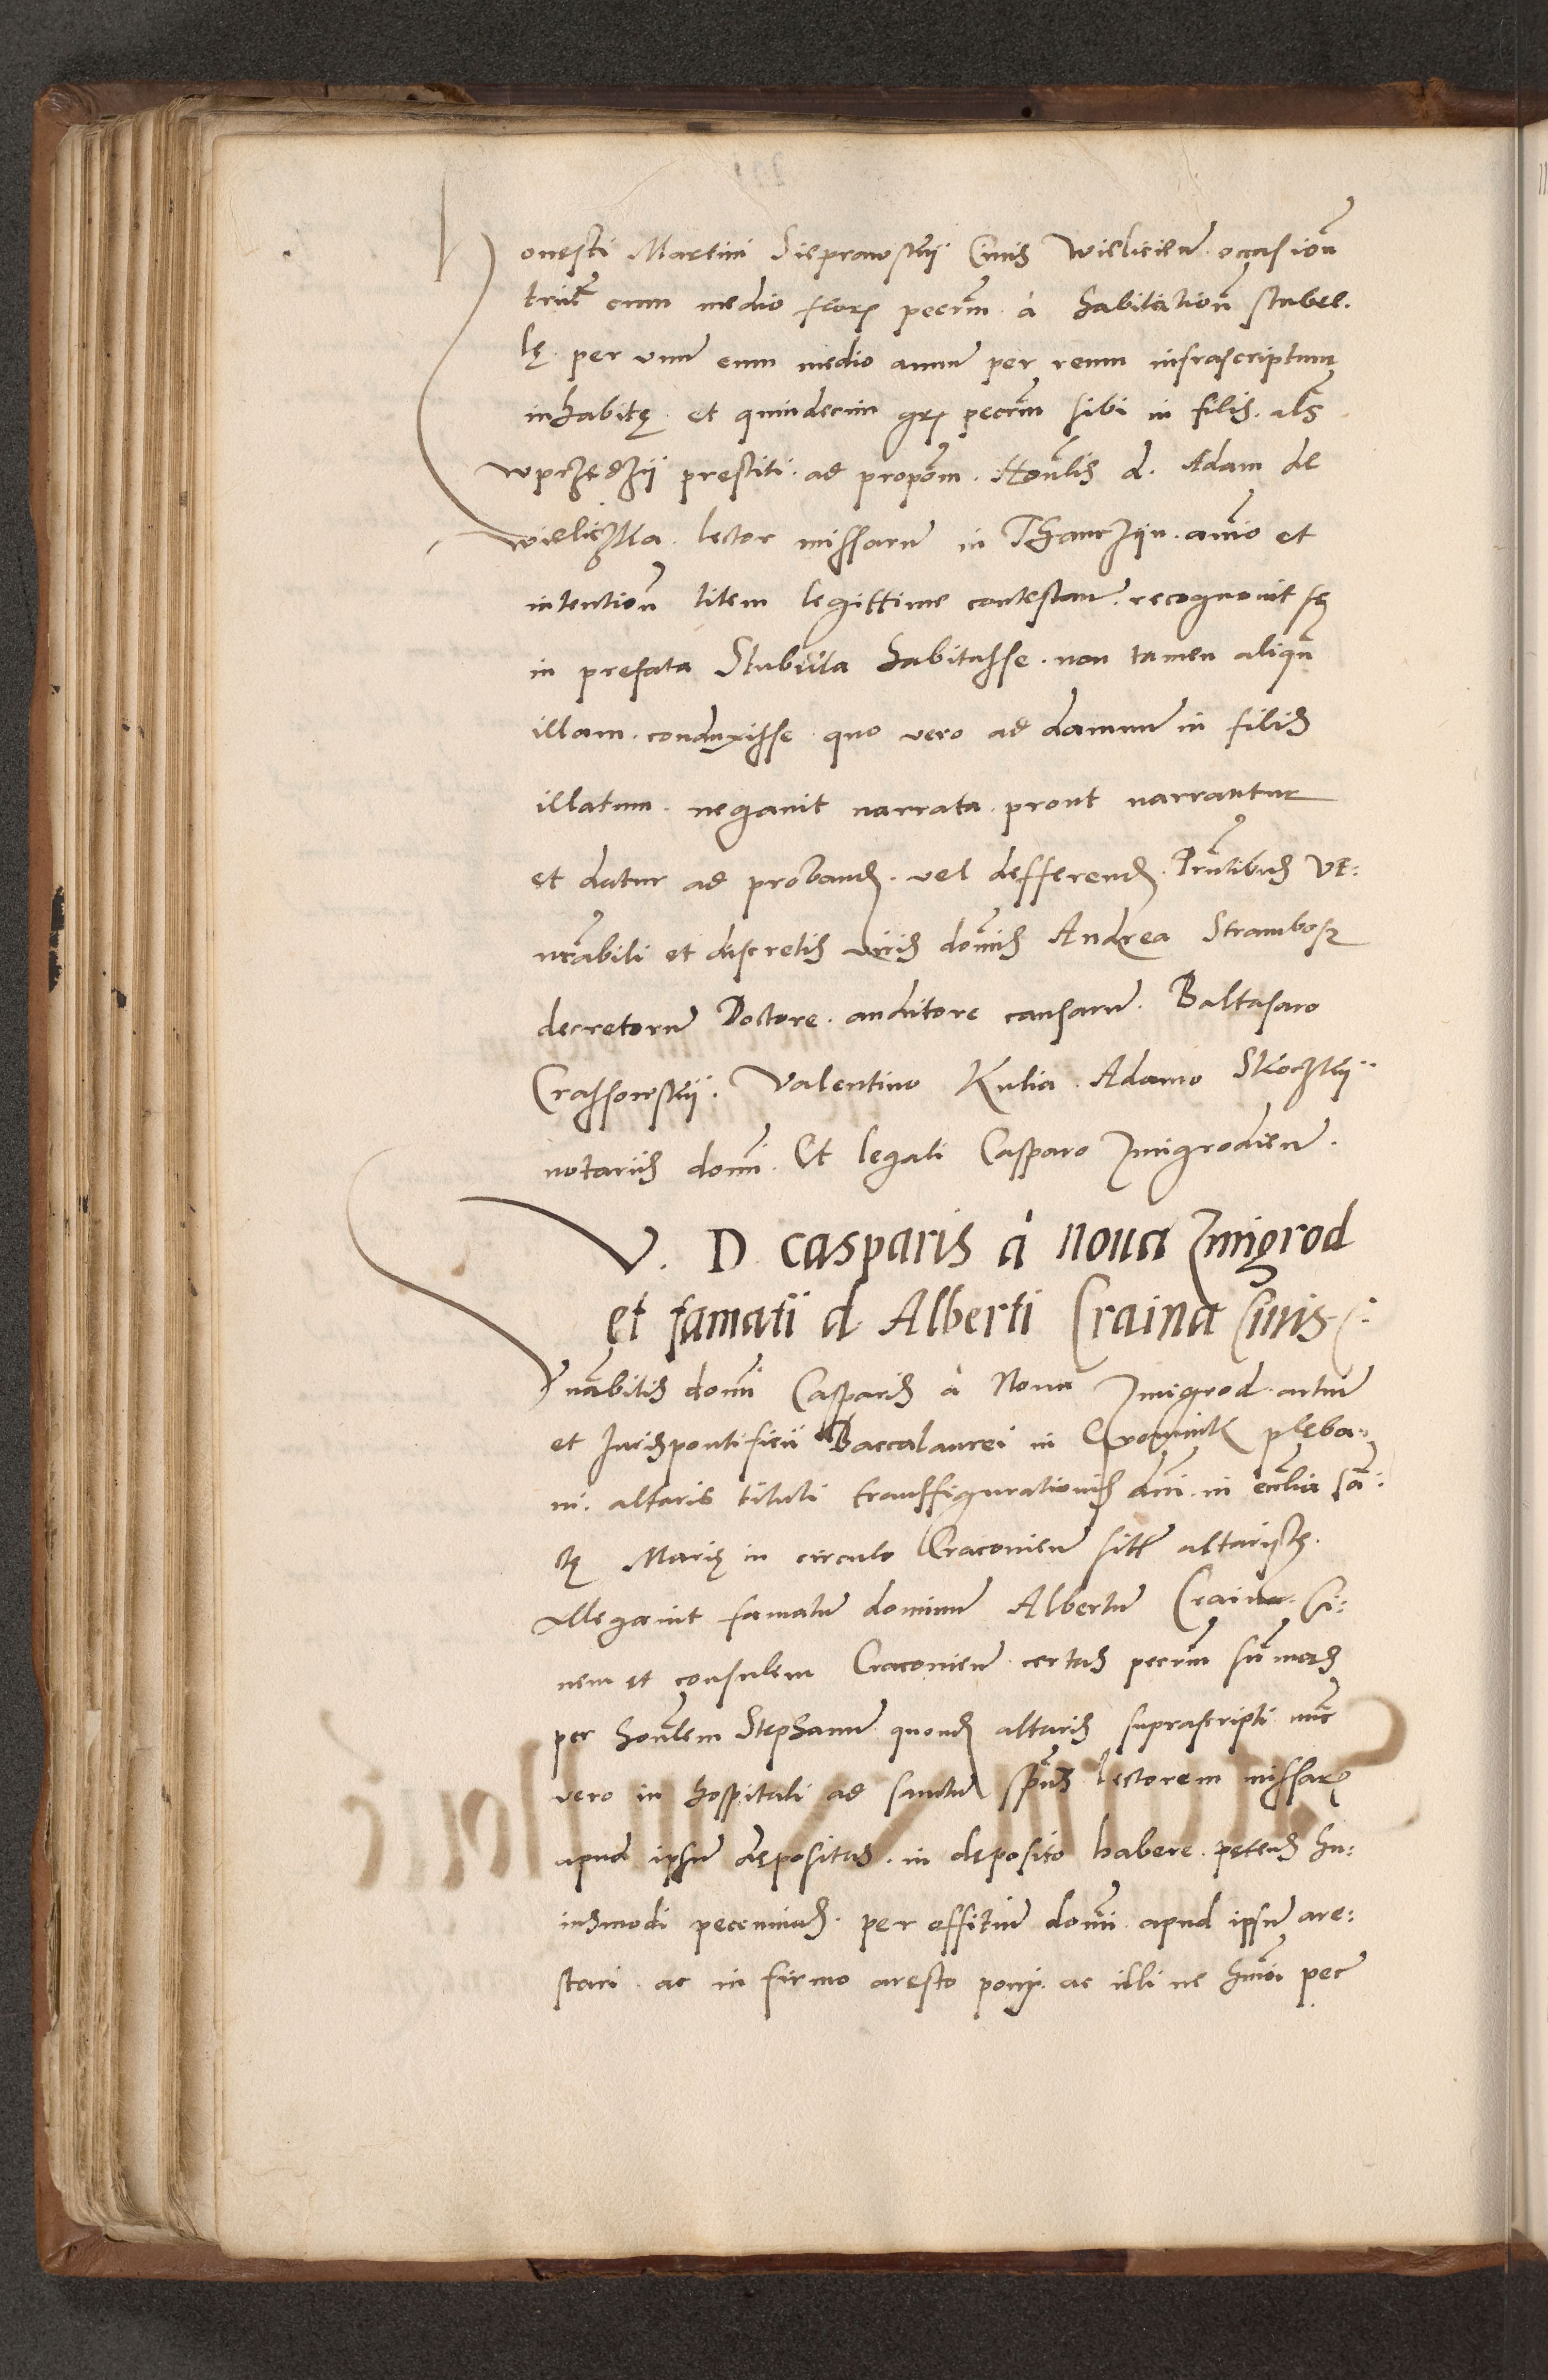 Honesti Martini Sieprawskÿ Ciuis Wielicień occasioñ
triū cum medio flor pecūm à habitatioñ stubel.
lę per vnū cum medio annū per reum infrascriptum
inhabitę et quindecim gr pecūm sibi in filis als
wprzędzÿ prestiti ad propom. Honlis d. Adam de
wieliczka lector missarū in Thanczÿn animo et
intentioñ litem legittime contestań recognouit sę
in prefata Stubella habitasse non tamen aliqñ
illam conduxisse quo vero ad damnū in filis
illatum negauit narrata prout narrantur
et datur ad proband vel defferend Pntibus Ve:
nerabili et discretis viris domis Andrea Strambosz
decretorū Doctore auditore causarū. Baltasaro
Crassowskÿ. Valentino Kulia Adamo Skoczkÿ
notarijs domi Et legali Casparo Zmigrodień.
V. D. casparis à noua Zmigrod
et famati d Alberti Craina Ciuis C:
Vnābilis domi Casparis à Noua Zmigrod artiū
et Jurispontificii Baccalaurei in plęba:
ni altaris tituli transfigurationis dni in ecclia san:
tę Marię in circulo Cracowień sitł altaristę.
Allegauit famatū dominū Albertū Craina Ci:
uem et consulem Cracowień certas pecūm sūmas
per honlem Stephanū quond altaris suprascripti nūc
vero in hospitali ad sanctū spūs lectorem missar
apud ipsū dępositas in dęposito habere pętens hu:
iusmodi peccunias per offitiū domi apud ipsū are:
stari ac in firmo aresto poni ac illi ne hmōi pec